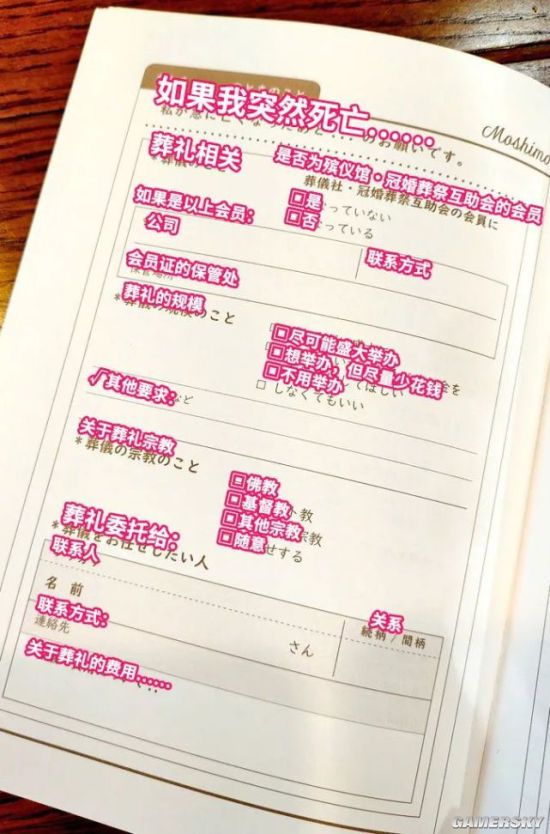 如果我突然死亡......
Moshimo
のお願いです。
葬礼相关
是否为殡仪馆·冠婚葬祭互助会的会员
葬儀社・冠婚葬祭互助会の会員に
□是
っていない
□否
っている
如果是以上会员：
公司
联系方式
会员证的保管处
葬礼的规模
のこと
□尽可能盛大举办
□想举办，但尽量少花钱
□不用举办
□ しなくてもいい
√其他要求：
など
关于葬礼宗教
*葬儀の宗教のこと
□佛教
□基督教
教
□其他宗教
宗教
□随意
せする
葬礼委托给：
*葬儀をお任せしたい人
联系人
名前
关系
続柄 / 間柄
联系方式：
連絡先
さん
关于葬礼的费用......
GAMERSKY